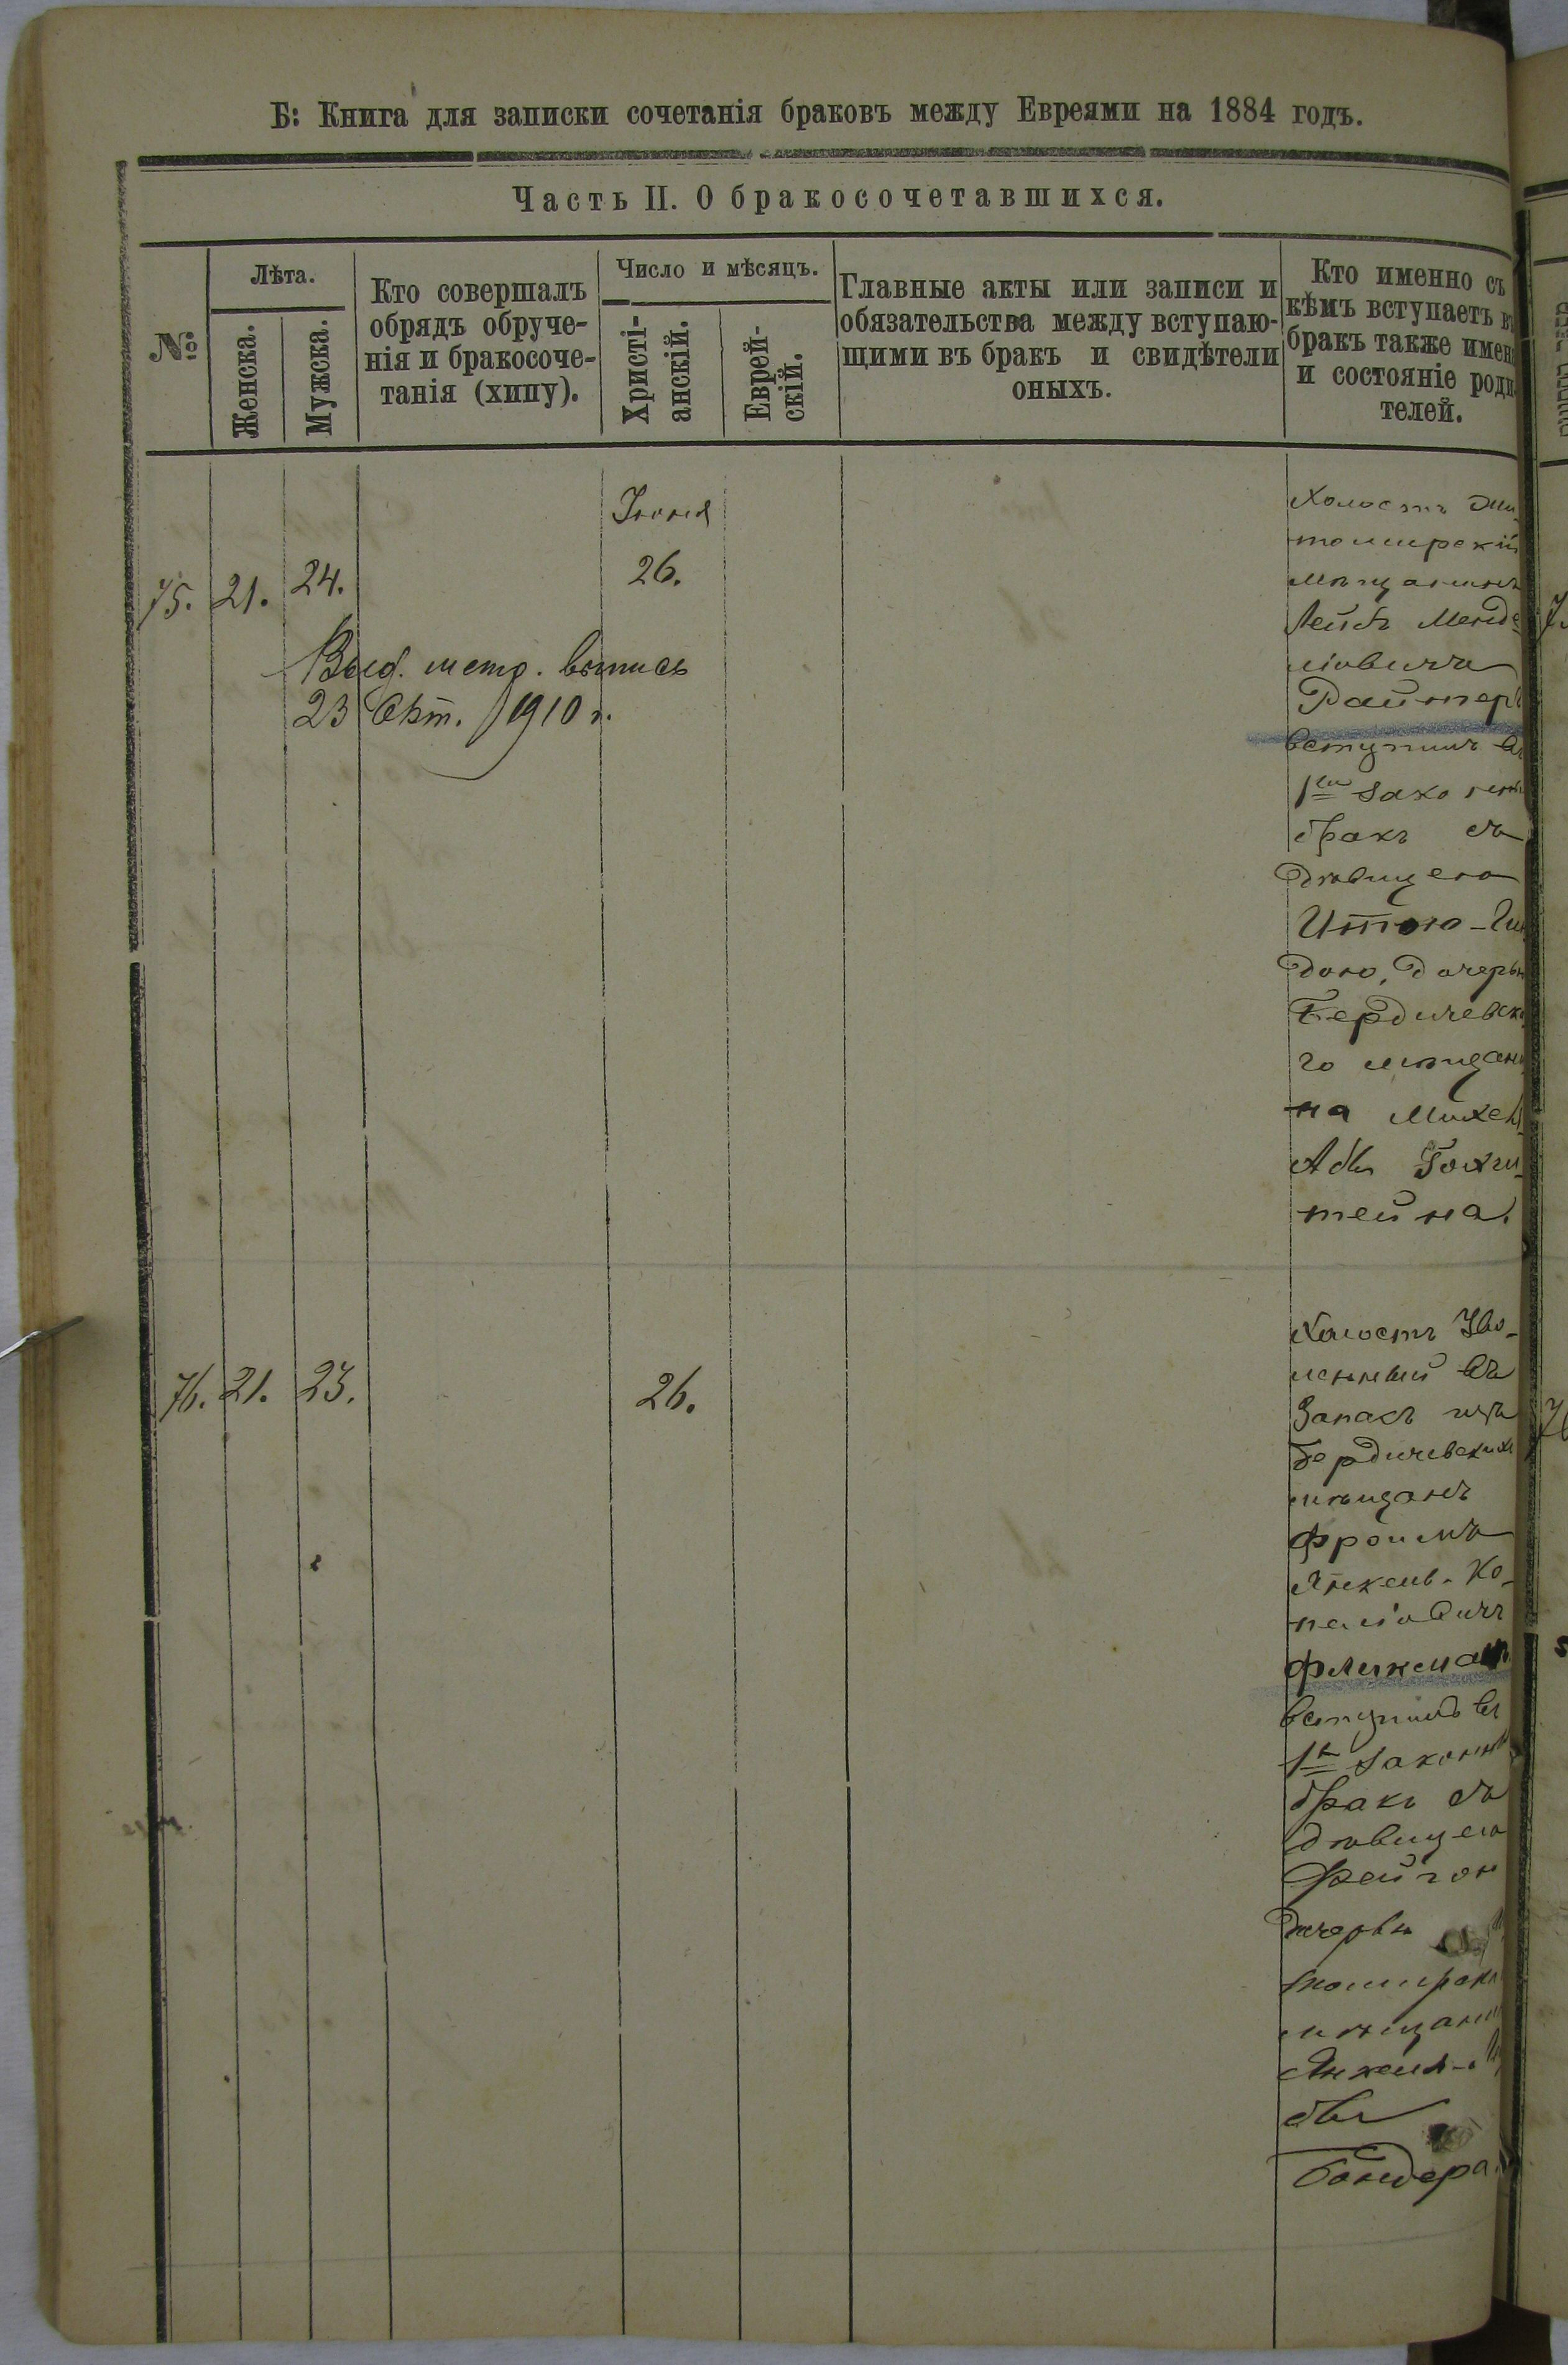 Б: Книга для записки сочетанія браковъ между Евреями на 1884 годъ.
Часть II. О бракосочетавшихся.
№
Лѣта.
Женска.
Мужска.
Кто совершалъ
обрядъ обруче-
нія и бракосоче-
танія (хипу).
Число и мѣсяцъ.
Христі-
анскій.
Еврей-
скій.
Главные акты или записи и
обязательства между вступаю-
щими въ бракъ и свидѣтели
оныхъ.
Кто именно съ
кѣмъ вступаетъ въ
бракъ также имен
и состояніе роди
телей.
75.
21.
24.
Іюня
26.
Выд. метр. выпись
23 Окт. 1910 г.
Холостъ Жи
томирскій
мѣщанинъ
Лейбъ Менде
ліовичъ
Райтеръ
вступилъ въ
1ый законн
бракъ съ
дѣвицею
Итою-
дою, дочерью
Бердичевска
го мѣщани
на
Гохш
тейна.
76.
21.
23.
26.
Холостъ Уво-
ленный въ
Запасъ изъ
Бердичевскихъ
мѣщанъ
Фроимъ
Янкель-Ко-
пеліовичъ
вступилъ въ
1й законн
бракъ съ
дѣвицею
Фейгою
дочерью
томирск
мѣщани
Янкеля-
Бондера.